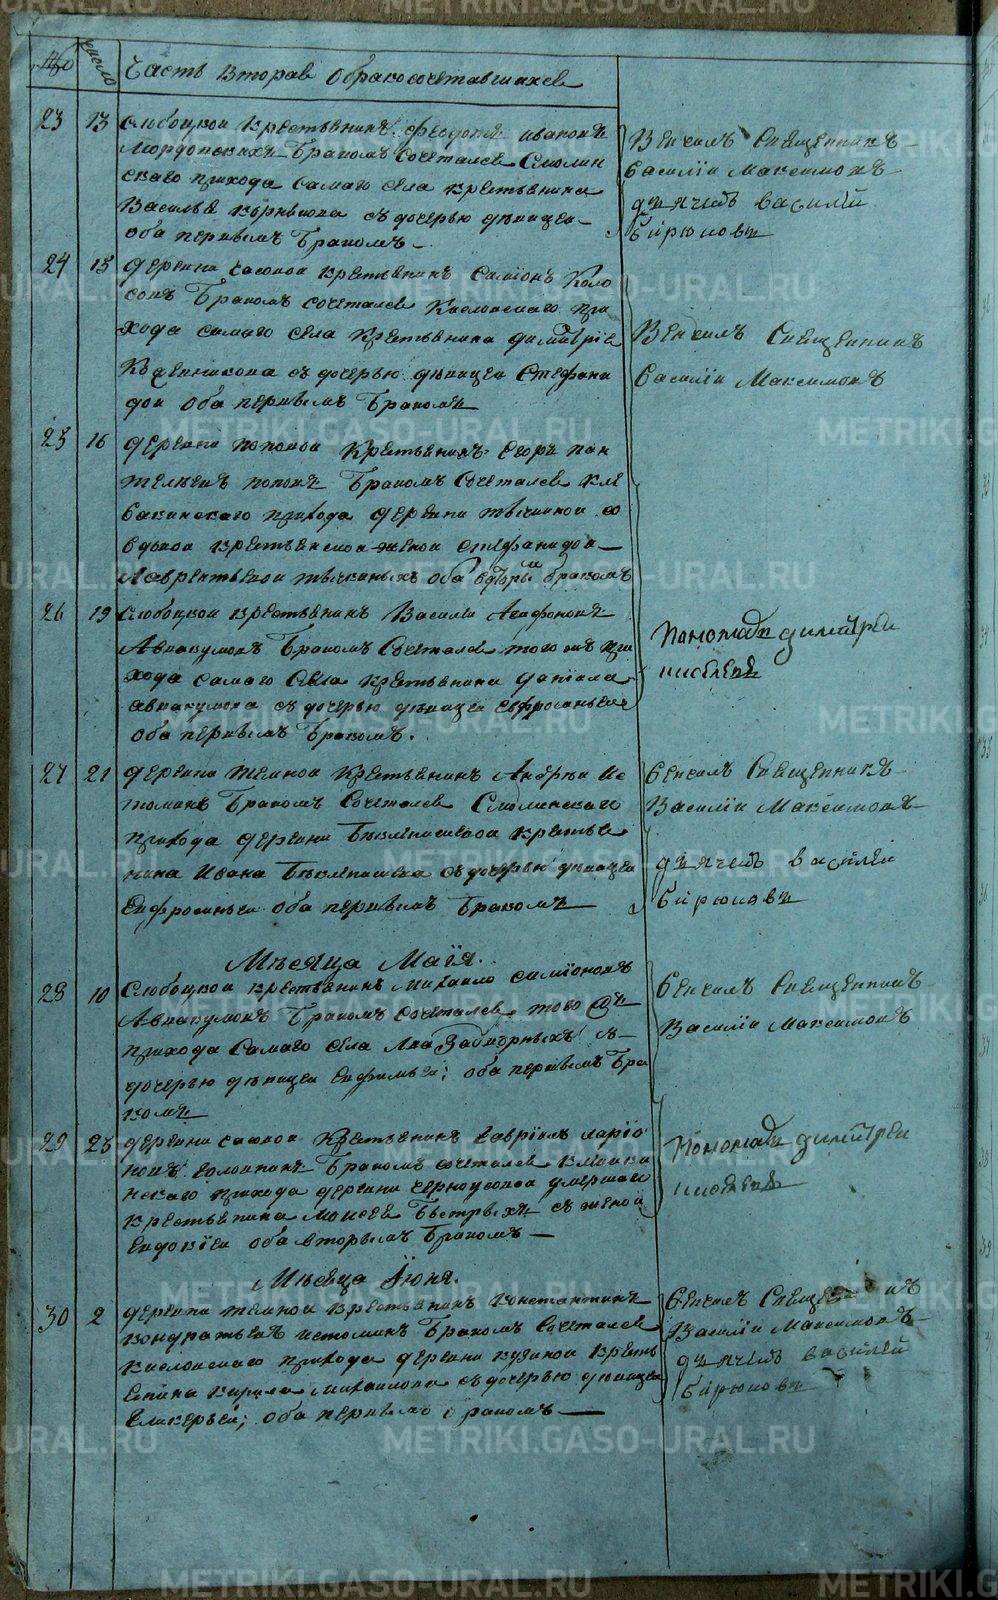 № число Часть Вторая О бракосочетавшихся
23 13 Слободкой крестьянинъ Феодотъ Ивановъ
Мордовскихъ Бракомъ Сочетался Смолин
скаго прихода Самаго села крестьянина
Василья Корнилова съ дочерью девицей
оба первымъ Бракомъ.
Венчалъ Священникъ
Василiй Максимовъ
дьячекъ василiй
бирюковъ
24 15 деревни крестьянинъ Симiонъ Коло
совъ Бракомъ сочетался Кисловскаго при
хода самаго села Крестьянина димитрiя
съ дочерью девицей Стефани
дой Оба первымъ Бракомъ
Венчалъ Священникъ
Василiй Максимовъ
25 16 деревни поповой Крестьянинъ Егоръ пан
телеевъ поповъ Бракомъ Сочетался Кле
вакинскаго прихода деревни со
вдовой крестьянской женой Стефанидой
Лаврентьевой оба вторымъ бракомъ
26 19 Слободкой крестьянинъ Василiй Агафоновъ
Аввакумовъ Бракомъ Сочетался того жъ при
хода самаго Села крестьянина данiила
аввакумова съ дочерью девицей евфросиньей
оба первымъ Бракомъ.
Пономарь димитрей
27 21 деревни темной Крестьянинъ Андрей Ис
томинъ Бракомъ Сочетался Смолинскаго
прихода деревни крестья
нина Ивана съ дочерью девицей
Евфросиньей оба первымъ Бракомъ
Венчалъ Священникъ
Василiй Максимовъ
дьячекъ василей
бирюковъ
Месяца Маiя.
28 10 Слободкой крестьянинъ Михайло симiоновъ
Аввакумовъ Бракомъ Сочетался того жъ
прихода Самаго села съ
дочерью девицей Евфимьей; оба первымъ Бра
комъ
Венчалъ Священникъ
Василiй Максимовъ
29 23 деревни Крестьянинъ Гаврiилъ Ларiо
новъ Бракомъ сочетался
скаго прихода деревни Черноусовой умершаго
крестьянина Моисея Быстрыхъ съ женой
Евдокiей оба вторымъ Бракомъ
Пономарь димитрей
Месяца Iюня.
30 2 деревни темной крестьянинъ Константинъ
Кондратьевъ истоминъ Бракомъ Сочетался
Кисловскаго прихода деревни крестья
нина Кирила Михайлова съ дочерью девицей
Гликерьей; оба первымъ Бракомъ
Венчалъ
Василiй Максимовъ
дьячекъ василей
бирюковъ
METRIKI.GASO-URAL.RU